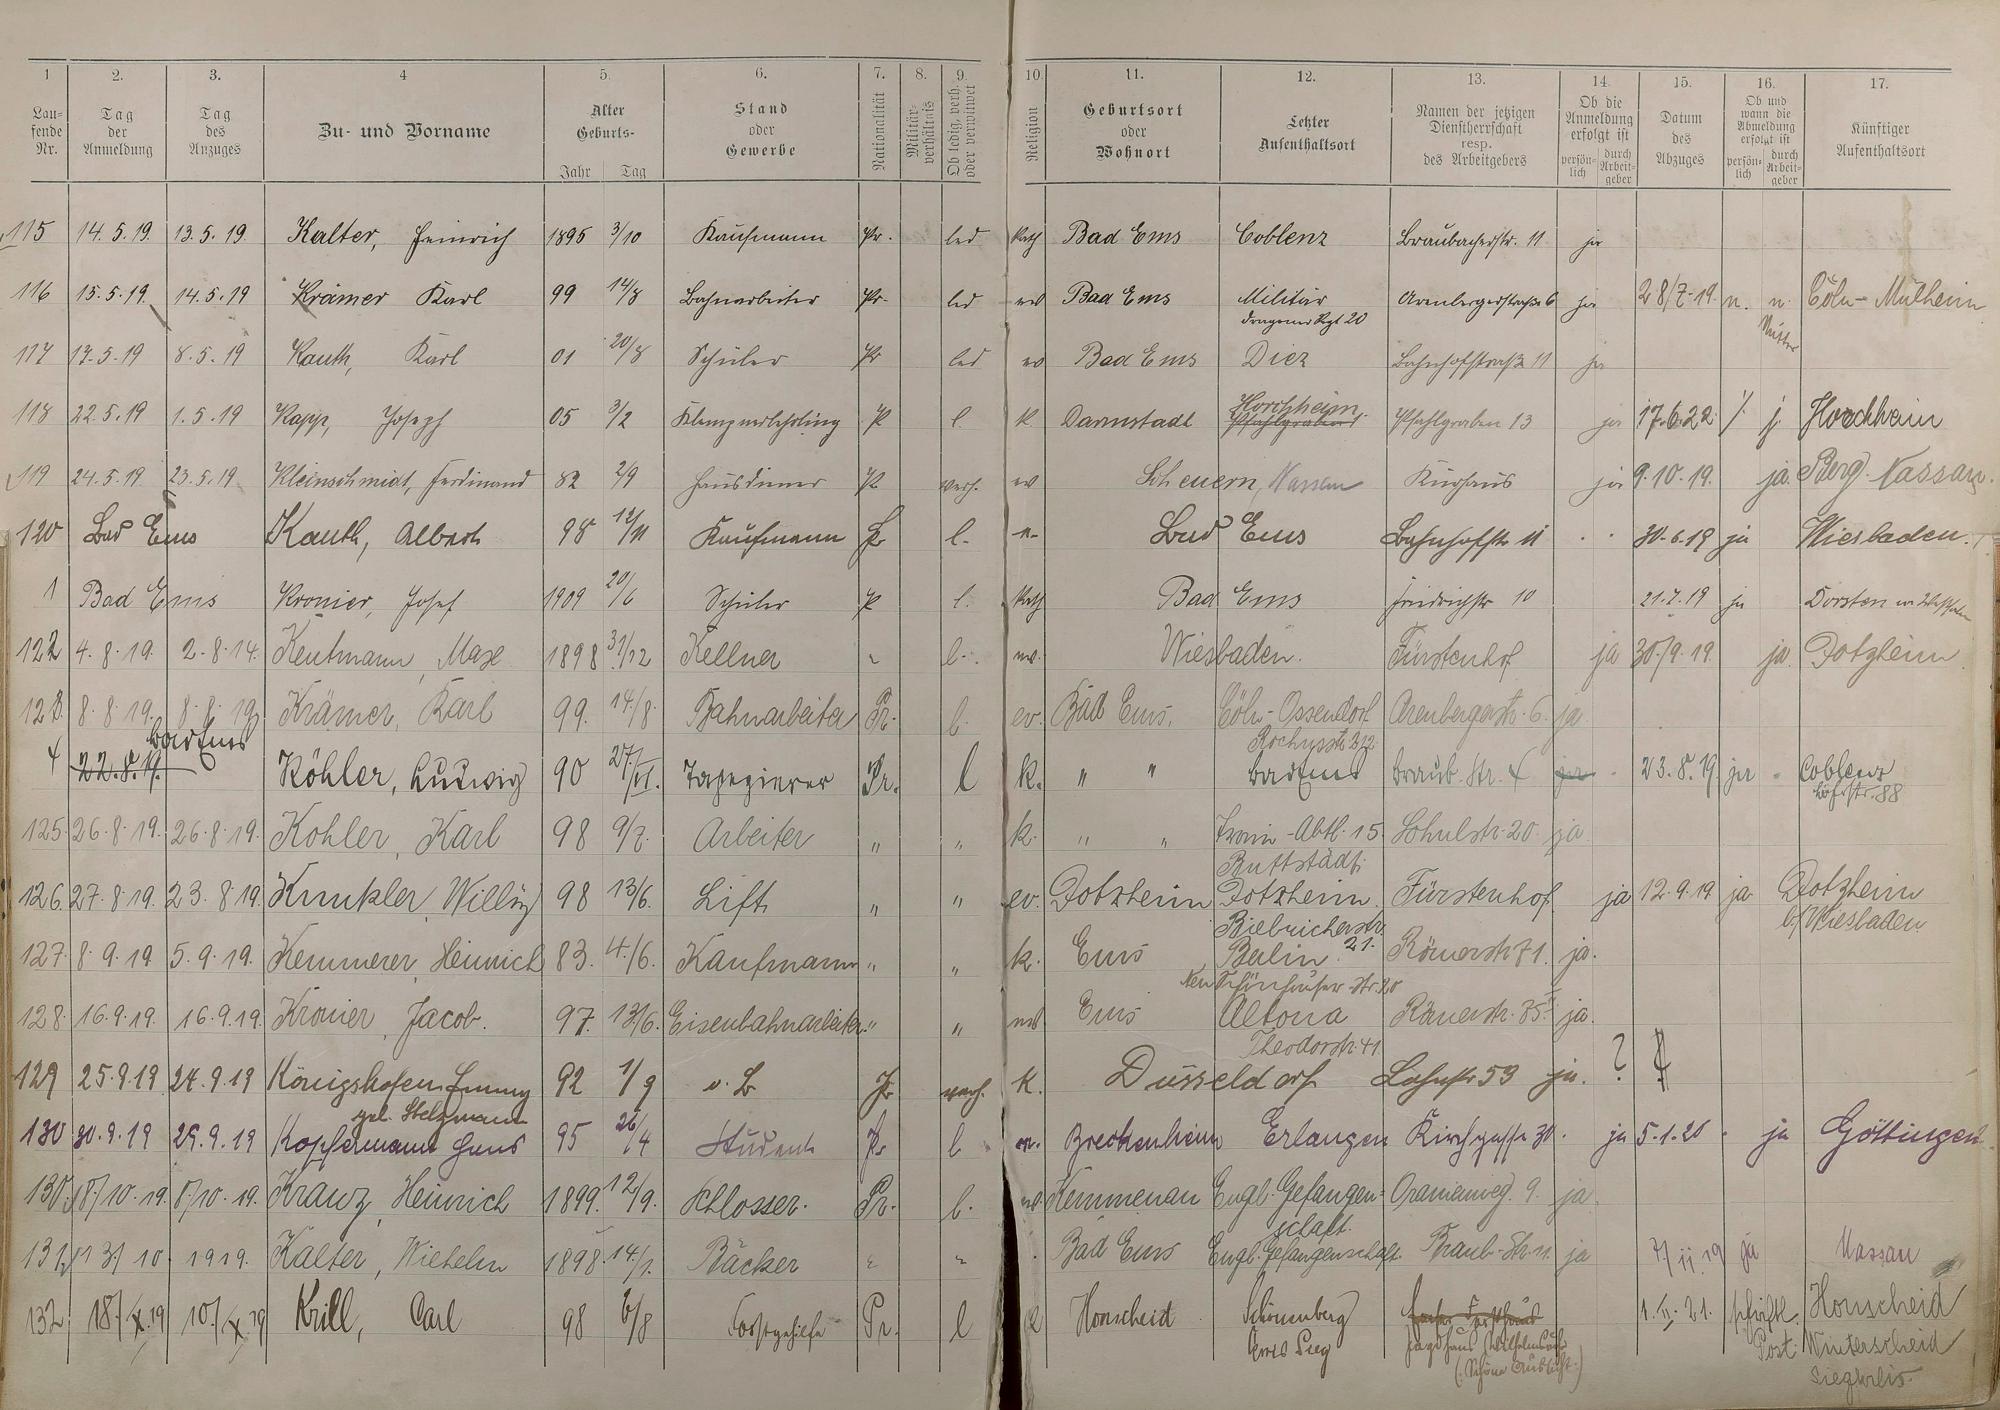 1 2. 3. 4 5. 6. 7. 8. 9. 10. 11. 12. 13. 14. 15. 16. 17.
Lau-fende Nr. Tag der Anmeldung Tag des Anzuges Zu- und Vorname Alter Geburts- Jahr Tag Stand oder Gewerbe Nationalität Militär-verhältnis Ob ledig, verh. oder verwitwet Religion Geburtsort oder Wohnort Letzter Aufenthaltsort Namen der jetzigen Dienstherrschaft resp. des Arbeitgebers Ob die Anmeldung erfolgt ist persön-lich durch Arbeit-geber Datum des Abzuges Ob und wann die Abmeldung erfolgt ist persön-lich durch Arbeit-geber Künftiger Aufenthaltsort
115 14.5.19. 13.5.19. Kalter, Heinrich 1895 3/10 Kaufmann Pr. led Kath Bad Ems Coblenz Braubacherstr. 11 ja
116 15.5.19. 14.5.19 Krämer Karl 99 14/8 Bahnarbeiter Pr. led ev Bad Ems Militär Arenbergerstraße 6 ja 28/7-19. n. n. Cöln-Mülheim
Dragoner Regt 20 Mutter
117 8.5.19 Kauth, Karl 01 20/8 Schüler Pr led ev Bad Ems Diez Bahnhofstraße 11 ja
118 22.5.19 1.5.19 Kapp, Joseph 05 3/2 Klempnerlehrling P l. K Darmstadt Horchheim Pfahlgraben 13 ja 17.6.22. j Horchheim
119 24.5.19 23.5.19 Kleinschmidt, Ferdinand 82 2/9 Hausdiener P verh. ev Scheuern, Nassau Kurhaus ja 9.10.19. ja. Berg-Nassau.
120 Bad Ems Kauth, Albert 98 12/11 Kaufmann Pr l. Bad Ems Bahnhofstr 11 30.6.19 ja Wiesbaden.
1 Bad Ems Kronier, Josef 1909 20/6 Schüler P l. Kath Bad Ems Friedrichstr 10 21.7.19 ja Dorsten in Westfalen
122 4.8.19. 2.8.14. Kentmann, Max 1898 31/12 Kellner l. Wiesbaden. Fürstenhof ja 30./9.19. ja. Dotzheim
123. 8.8.19. 8.8.19 Krämer, Karl 99. 14/8. Bahnarbeiter Pr. l. ev. Bad Ems. Cöln-Ossendorf Arenbergerstr. 6. ja
Bad Ems Rochusstr 212
4 22.8.19. Köhler, Ludwig 90 27/VI. Tapezierer Pr. l k. " " Bad Ems Braub. Str. 4 ja 23.8.19. ja Coblenz
Löhrstr. 88
125. 26.8.19. 26.8.19. Kohler, Karl 98 9/7. Arbeiter " " k. " " Train-Abtl. 15. Schulstr. 20. ja
Buttstädt.
126. 27.8.19. 23.8.19. Kunkler, Willy 98 13/6. Lift " " ev. Dotzheim Dotzheim. Fürstenhof ja 12.9.19 ja Dotzheim
Biebricherstr. 21. b/Wiesbaden
127. 8.9.19. 5.9.19. Kemmerer, Heinrich 83. 4./6. Kaufmann " " k. Ems Berlin Römerstr 71. ja.
Neu Schönhauser-Str. 20
128. 16.9.19. 16.9.19. Kronier, Jacob. 97. 13/6. Eisenbahnarbeiter " " Ems Altona Römerstr. 35. ja.
Theodorstr. 41.
129 25.9.19 24.9.19 Königshofen Emmy 92 1/9 o. B Pr verh. k. Düsseldorf Lahnstr 53 ja. ?
geb. Stelzmann
130 30.9.19 29.9.19 Kopfermann Hans 95 26/4 Student Pr l ev. Breckenheim Erlangen Kirchgasse 30. ja 5.1.20. ja Göttingen.
18/10.19. 8/10.19. Kranz, Heinrich 1899. 12/9. Schlosser. Pr. l. Kemmenau Engl. Gefangen- Oranienweg. 9. ja.
schaft.
131. 13/10 1919. Kalter, Wilhelm 1898. 14/1. Bäcker Bad Ems Engl. Gefangenschaft. Braub-Str. 11. ja 7/11.19 ja Nassau
132 18./X.19 10./X.19 Krill, Carl 98 6/8 Forstgehilfe Pr. l Honscheid Schönenberg 1.II.21. schriftl. Honscheid
Kreis Sieg Jagdhaus Post: Winterscheid
(Schöne Aussicht.) Siegkreis.